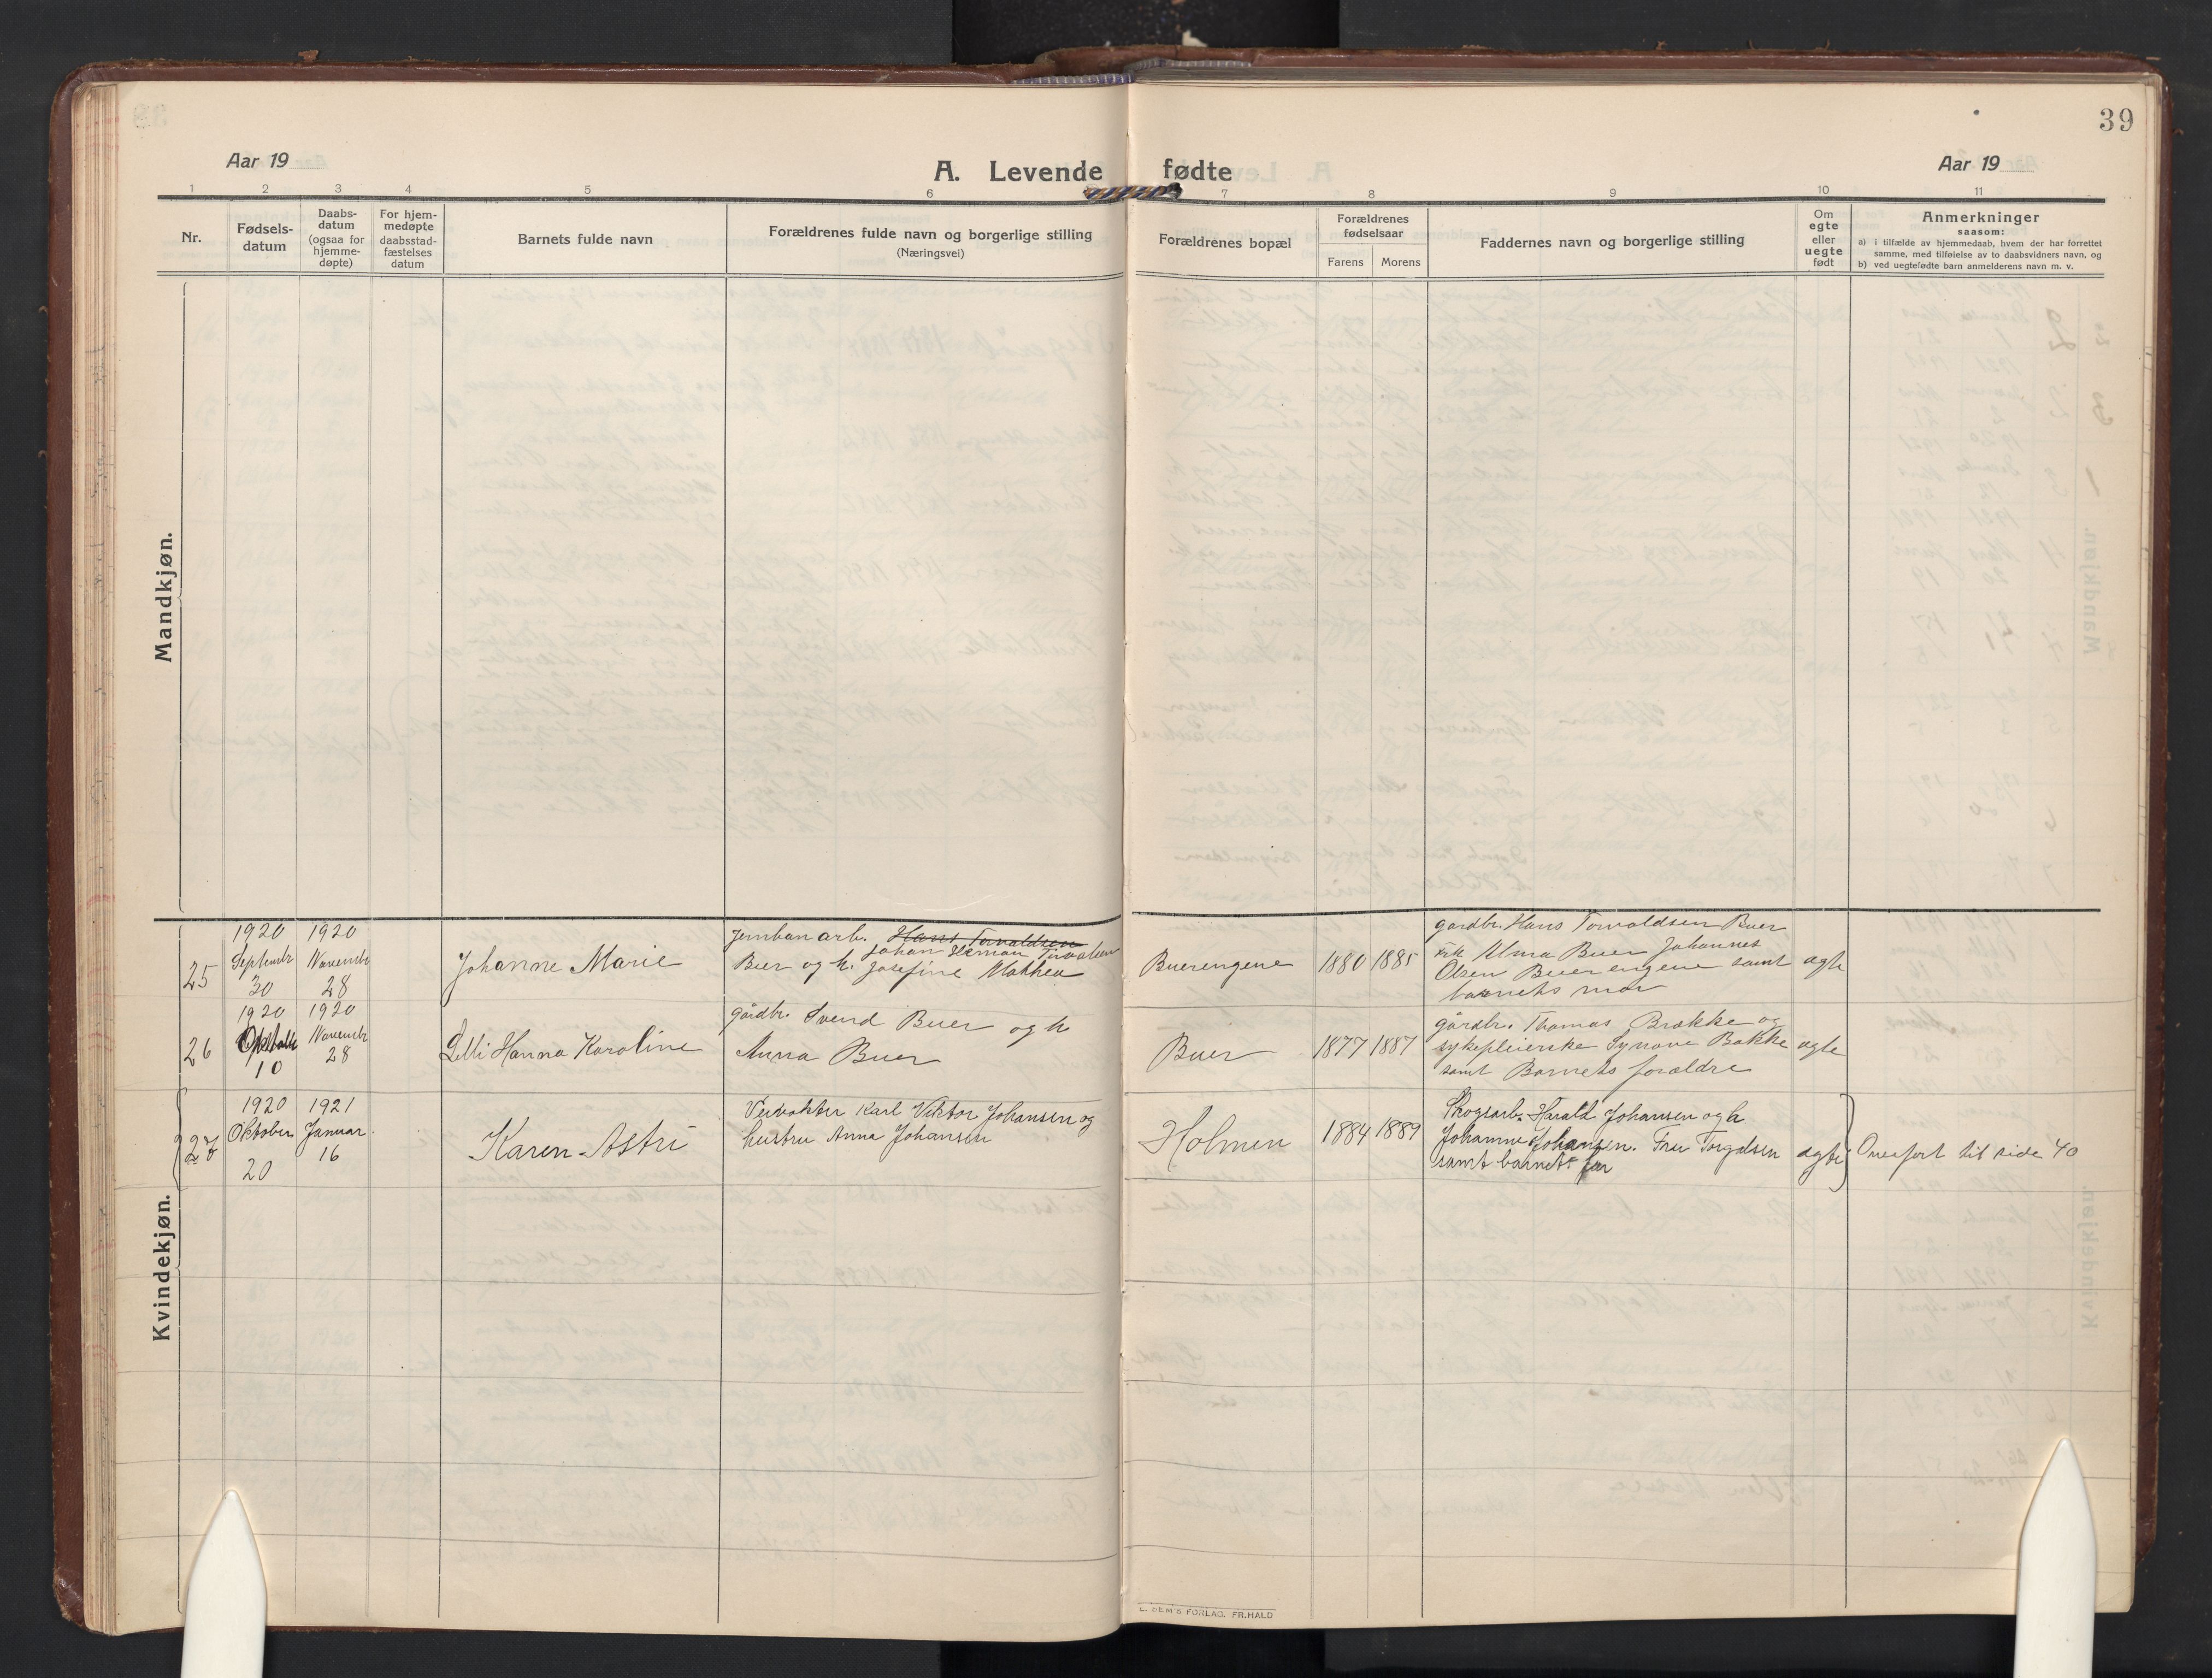 39
Aar 19
A. Levende fødte
Aar 19
1 2 3 4 5 6 7 8 9 10 11
Nr.
Fødsels-
datum
Daabs-
datum
(ogsaa for
hjemme-
døpte)
For hjem-
medøpte
daabsstad-
fæstelses
datum
Barnets fulde navn
Forældrenes fulde navn og borgerlige stilling
(Næringsvei)
Forældrenes bopæl
Forældrenes
fødselsaar
Farens Morens
Faddernes navn og borgerlige stilling
Om
egte
eller
uegte
født
Anmerkninger
saasom:
a) i tilfælde av hjemmedaab, hvem der har forrettet
samme, med tilføielse av to daabsvidners navn, og
b) ved uegtefødte barn anmelderens navn m. v.
Mandkjøn.
Kvindekjøn.
25
1920
Septembr
30
1920
Novembr
28
Johanne Marie
Jernbanarb. Hans Torvaldsen
Johan Herman Torvalsen
Buer og h. Josefine Mathea
Buerengene
1880 1885
gårdbr. Hans Torvaldsen Buer
Frk Alma Buer Johannes
Olsen Buerengene samt
barnets mor
egte
26
1920
Oktober
10
1920
Novembr
28
Lilli Hanna Karoline
gårdbr. Svend Buer og h
Anna Buer
Buer
1877 1887
gårdbr. Thomas Brække og
sykepleierske Synøve Bakke
samt Barnets forældre
egte
27
1920
Oktober
20
1921
Januar
16
Karen Astri
Veivokter Karl Viktor Johansen og
hustru Anna Johansen
Holmen
1884 1889
Skogsarb. Harald Johansen og h
Johanne Johansen. Fru Torgalsen
samt barnets far
egte
Overført til side 40
E. SEM'S FORLAG. FR.HALD